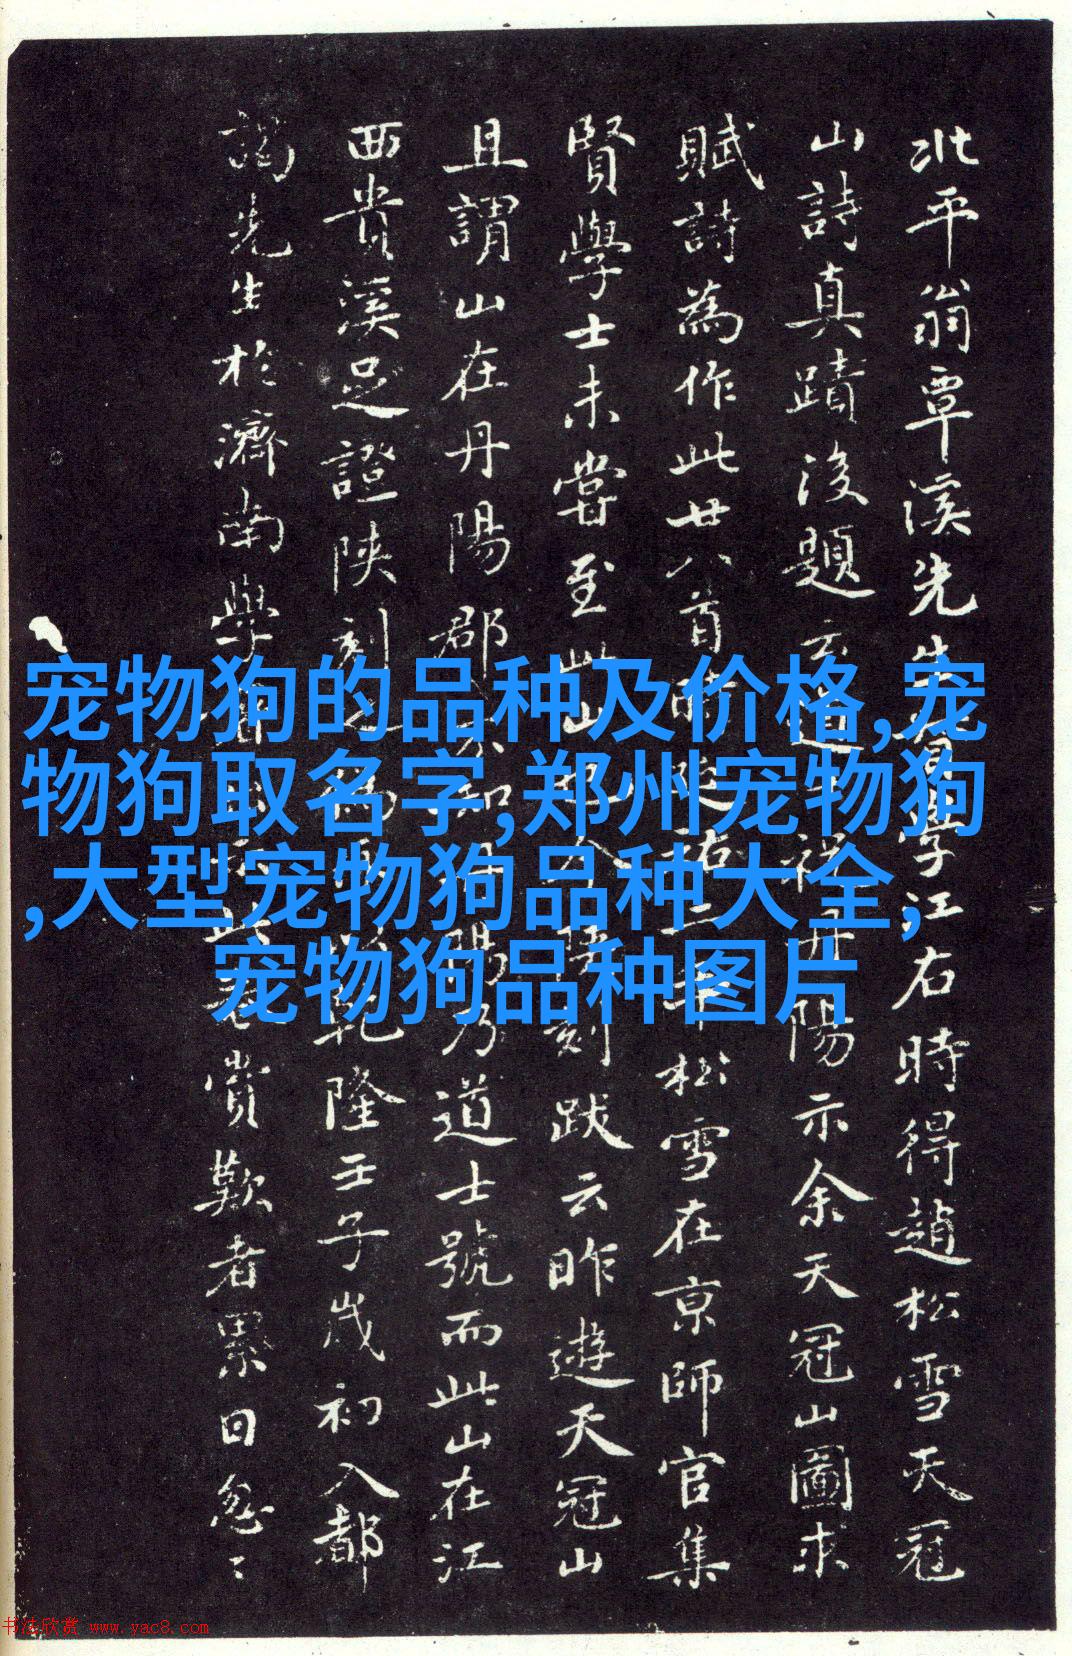 北平翁覃溪先生學江右時得趙松雪天冠
山詩真蹟後題云道士祝丹陽示余天冠山圖求
賦詩為作此廿八首時延祐二年松雪在京師官集
賢學士未嘗至此山刻跋云昨遊天冠山
且謂山在丹陽郡不知丹陽乃道士號而此山在江
西貴溪足證陝刻之偽乾隆壬子歲初入都
謁先生於濟南學賞歎者累日忽〻
宠物狗的品种及价格,宠
物狗取名字,郑州宠物狗
,大型宠物狗品种大全,
宠物狗品种图片
书法欣赏 www.yac8.com